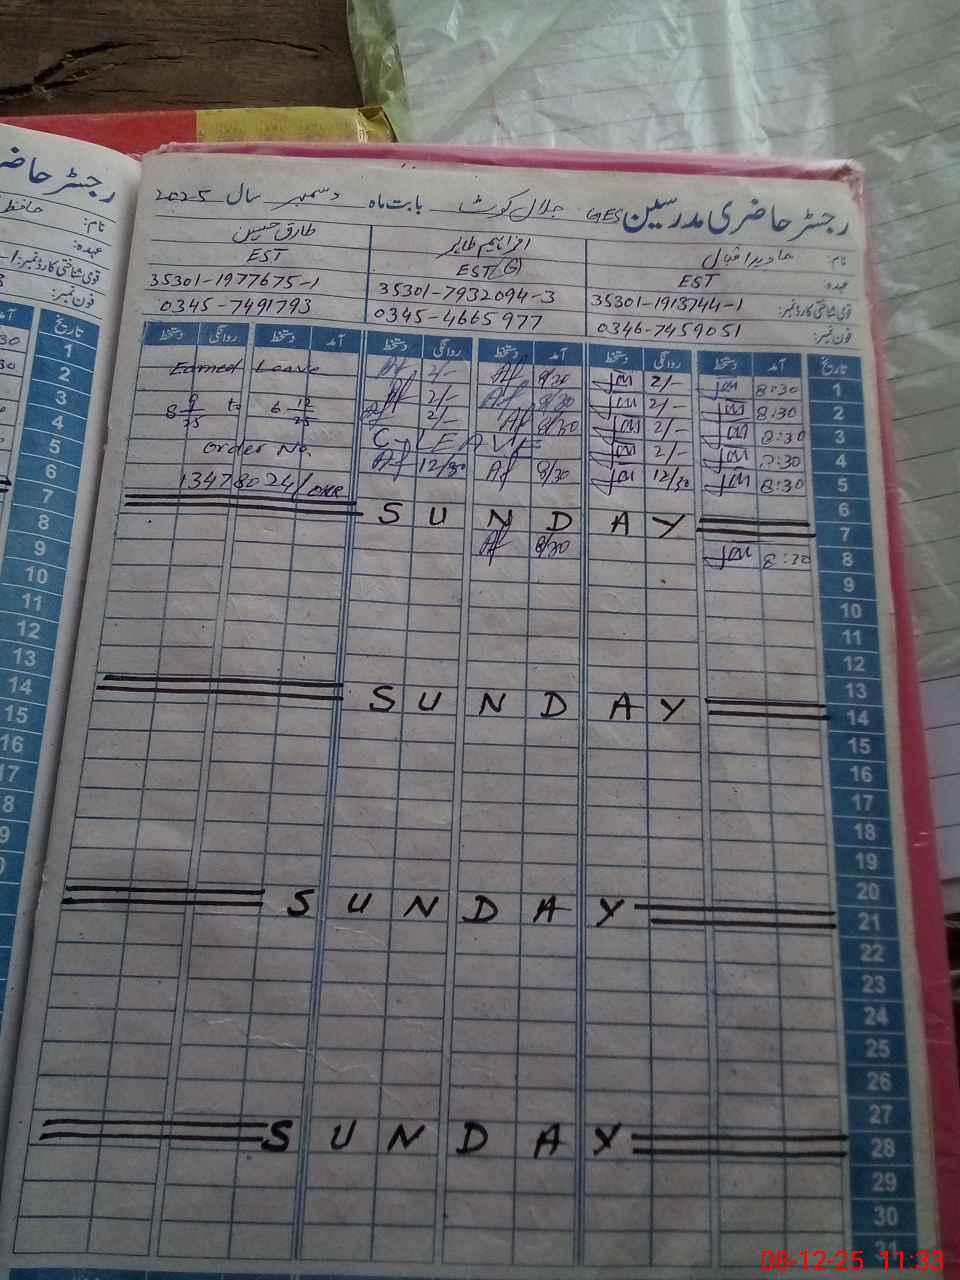 رجسٹر حاضری مدرسین GES جلال کوٹ بابت ماہ دسمبر سال 2025
نام: افراہیم طاہر طارق حسین
عہدہ: EST EST(G) EST
قومی شناختی کارڈ نمبر: 35301-1913744-1 35301-7932094-3 35301-1977675-1
فون نمبر: 0346-7459051 0345-4665977 0345-7491793
تاریخ آمد دستخط روانگی دستخط آمد دستخط روانگی دستخط آمد دستخط روانگی دستخط
1 8:30 2/- 8/30 2/- Earned Leave
2 8:30 2/- 8/30 2/-
3 8:30 2/- 8/30 2/- to 6 12/25
4 8:30 2/- C-LEAVE Order No.
5 8:30 12/30 8/30 12/30 13478024/
6
7 SUNDAY
8 8:30 8/30
9
10
11
12
13
14 SUNDAY
15
16
17
18
19
20
21 SUNDAY
22
23
24
25
26
27
28 SUNDAY
29
30
31
رجسٹر
نام: حافظ
عہدہ:
قومی شناختی کارڈ نمبر:
فون نمبر:
تاریخ
1
2
3
4
5
6
7
8
9
10
11
12
13
14
15
16
17
08-12-25 11:33